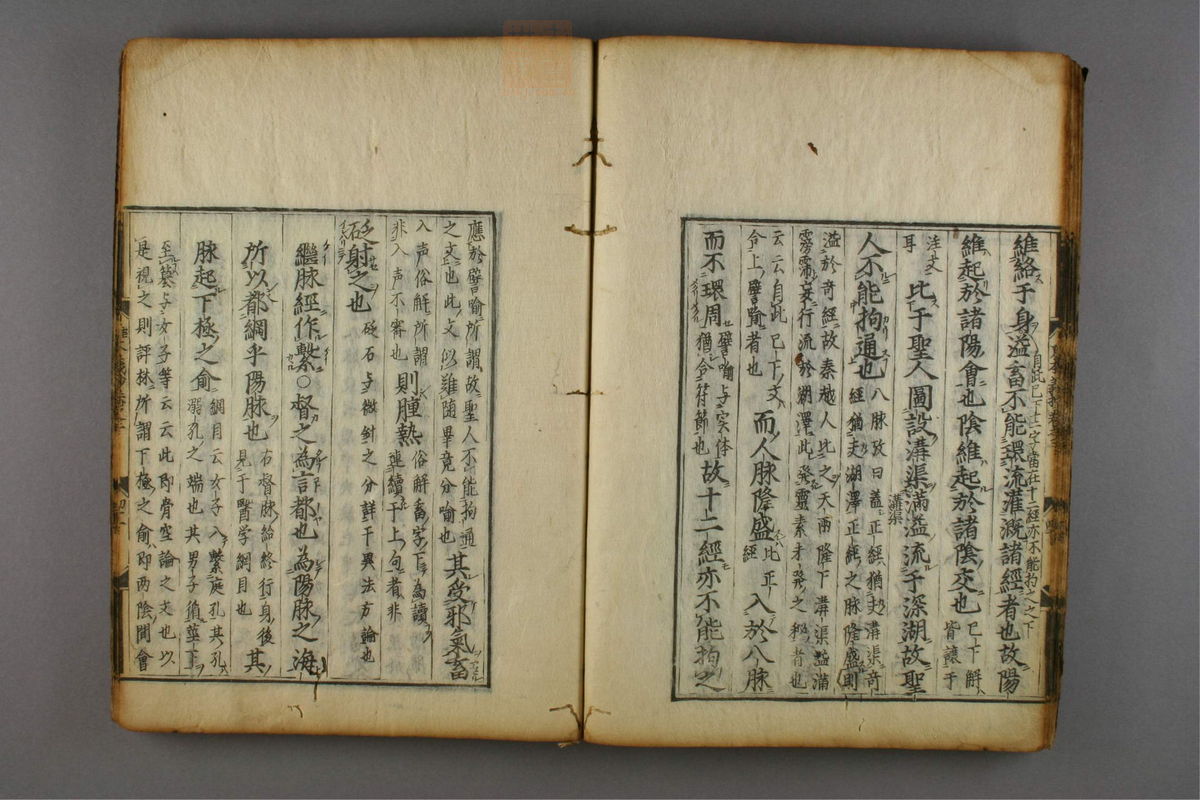 維絡于身溢畜不能環流灌漑諸經者也故陽
自此已下十二字當在十二經亦不能拘之之下
維起於諸陽會也陰維起於諸陰交也已下解皆讓于
注文耳 比于聖人圖設溝渠滿溢流于深湖故聖
溝渠
人不能拘通也八脉攷曰蓋正經猶夫溝渠奇經猶夫湖澤正經之脉隆盛則
溢於奇經故秦越人比之天雨降下溝渠溢滿
霶霈妄行流於湖澤此發靈素未發之秘者也
云云自此已下文
令上譬喩者也 而人脉隆盛此正經入於八脉
而不環周譬喩与実体猶合符節也故十二經亦不能拘之
應於譬喩所謂故聖人不能拘通
之文也此文似雖隨畢竟分喩也其受邪氣畜
入声俗解所謂
非入声不審也則腫熱俗解畜字下為讀連續于上句者非
砭射之也砭石与微針之分詳于異法方論也
繼脉經作繫○督之為言都也為陽脉之海
所以都綱乎陽脉也右督脉始終行身後見于醫学綱目也其
脉起下極之俞綱目云女子入繫庭孔其孔溺孔之端也其男子循莖下
至簒与女子等云云此即骨空論之文也以
是視之則評林所謂下極之俞即两陰間會